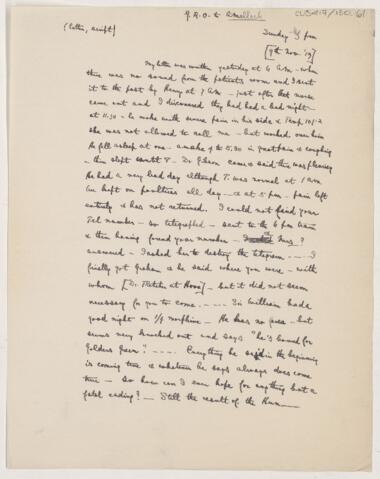 G.R.O. to A Mallock
(letter, script)
Sunday 5 pm
[9th Nov. '19]
My letter was written yesterday at 4 a.m. - when
there was no sound from the patient's room and I sent
it to the post by Henry at 7 AM - just after that nurse
came out and I discovered they had had a bad night -
at 11.30 - he woke with severe pain in his side & temp. 101.2
She was not allowed to call me - but worked over him
He fell asleep at one - awoke 4 to 5.30 in great pain & coughing
- then slept until 8 - Dr Gibson came & said this was pleurisy
He had a very bad day although T. was normal at 1 a.m.
We kept on poultices all day - & at 5 pm - pain left
entirely & has not returned. I could not find your
Tel number - so telegraphed - sent to the 6 pm train
& then having found your number - Mrs ?
answered - I asked her to destroy the telegram - - - - I
finally got Graham & he said where you were - with
whom [Dr. Fletcher at Hove] - but it did not seem
necessary for you to come. - - - - Sir William had a
good night on 1/4 morphine - He has no pain - but
seems very knocked out and says "he's bound for
Golders Green". - - - - Everything he said in the beginning
is coming true & whatever he says always does come
true - so how can I ever hope for anything but a
fatal ending? - Still the result of the